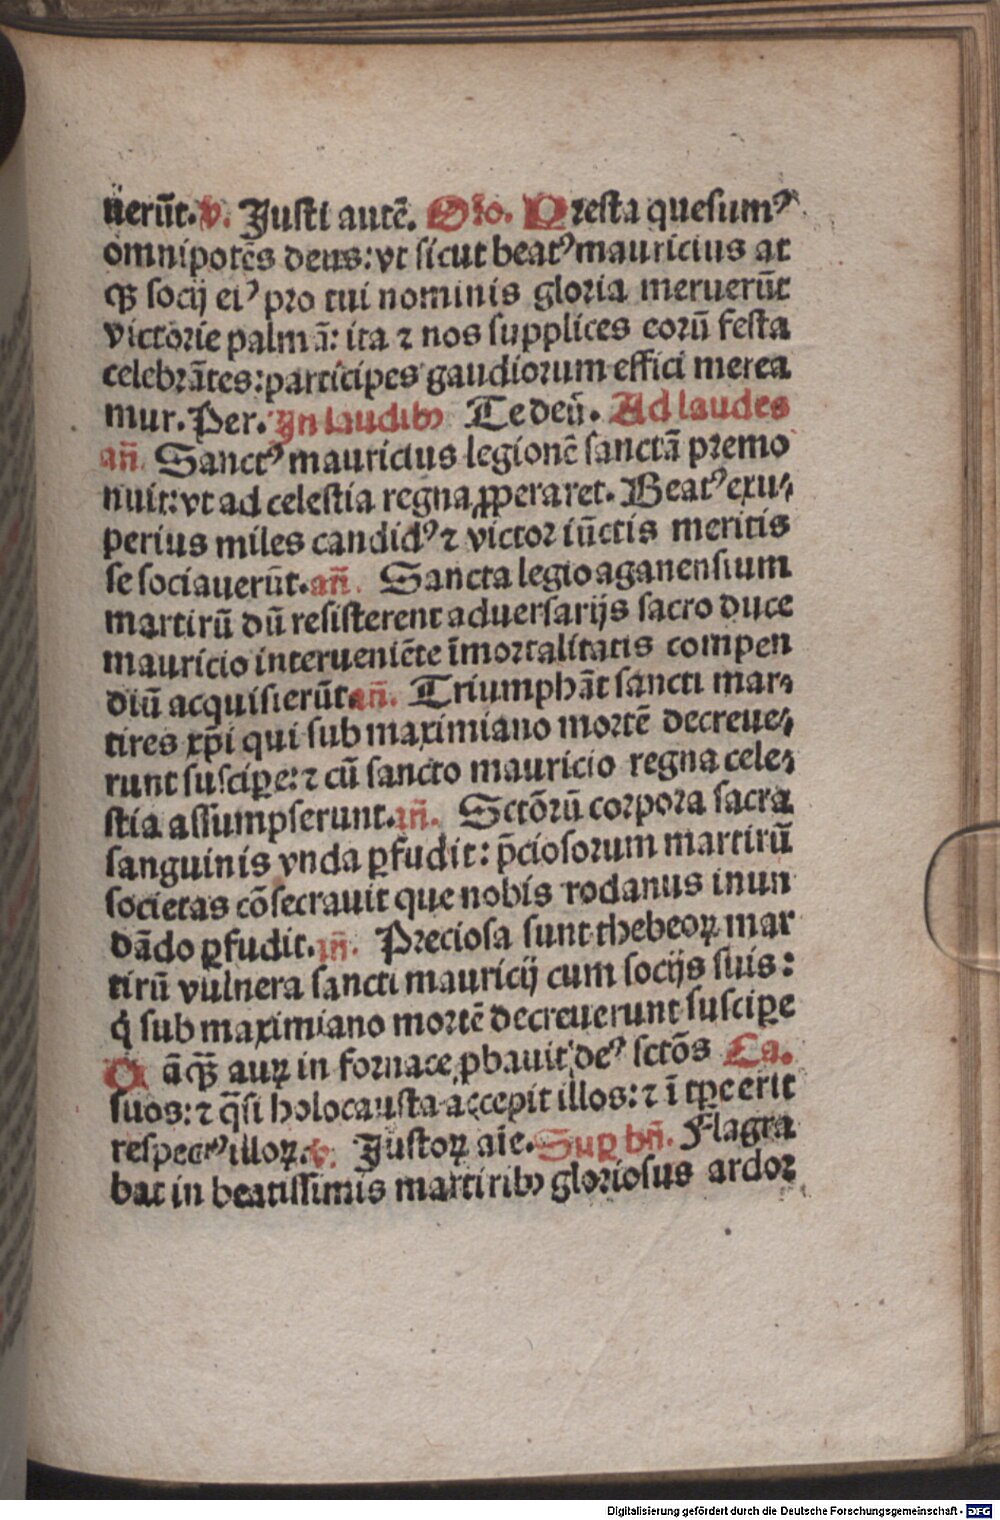 uerūt. v. Justi autē. Oro. Presta quesumꝰ
omnipotēs deus: vt sicut beatꝰ mauricius at
qꝫ socij eiꝰ pro tui nominis gloria meruerūt
victorie palmā: ita ⁊ nos supplices eorū festa
celebrātes: participes gaudiorum effici merea
mur. Per. In laudibꝰ Te deū. Ad laudes
an̄. Sanctꝰ mauricius legionē sanctā premo
nuit: vt ad celestia regna ꝓperaret. Beatꝰ exu⸗
perius miles candidꝰ ⁊ victor iūctis meritis
se sociauerūt. an̄. Sancta legio aganensium
martirū dū resisterent aduersarijs sacro duce
mauricio interueniēte īmortalitatis compen
diū acquisierūt. an̄. Triumphāt sancti mar⸗
tires xp̄i qui sub maximiano mortē decreue⸗
runt suscipe: ⁊ cū sancto mauricio regna cele⸗
stia assumpserunt. an̄. Sctōrū corpora sacra
sanguinis vnda ꝑfudit: p̄ciosorum martirū
societas cōsecrauit que nobis rodanus inun
dādo ꝑfudit. an̄. Preciosa sunt thebeoꝝ mar
tirū vulnera sancti mauricij cum socijs suis:
q̇ sub maximiano mortē decreuerunt suscipe
āqꝫ auꝝ in fornace ꝓbauit deꝰ sctōs Ca.
suos: ⁊ q̄si holocausta accepit illos: ⁊ ī tꝑe erit
respectꝰ illoꝝ. v. Justoꝝ aīe. Suꝑ bn̄. Flagra
bat in beatissimis martiribꝰ gloriosus ardor
Digitalisierung gefördert durch die Deutsche Forschungsgemeinschaft - DFG